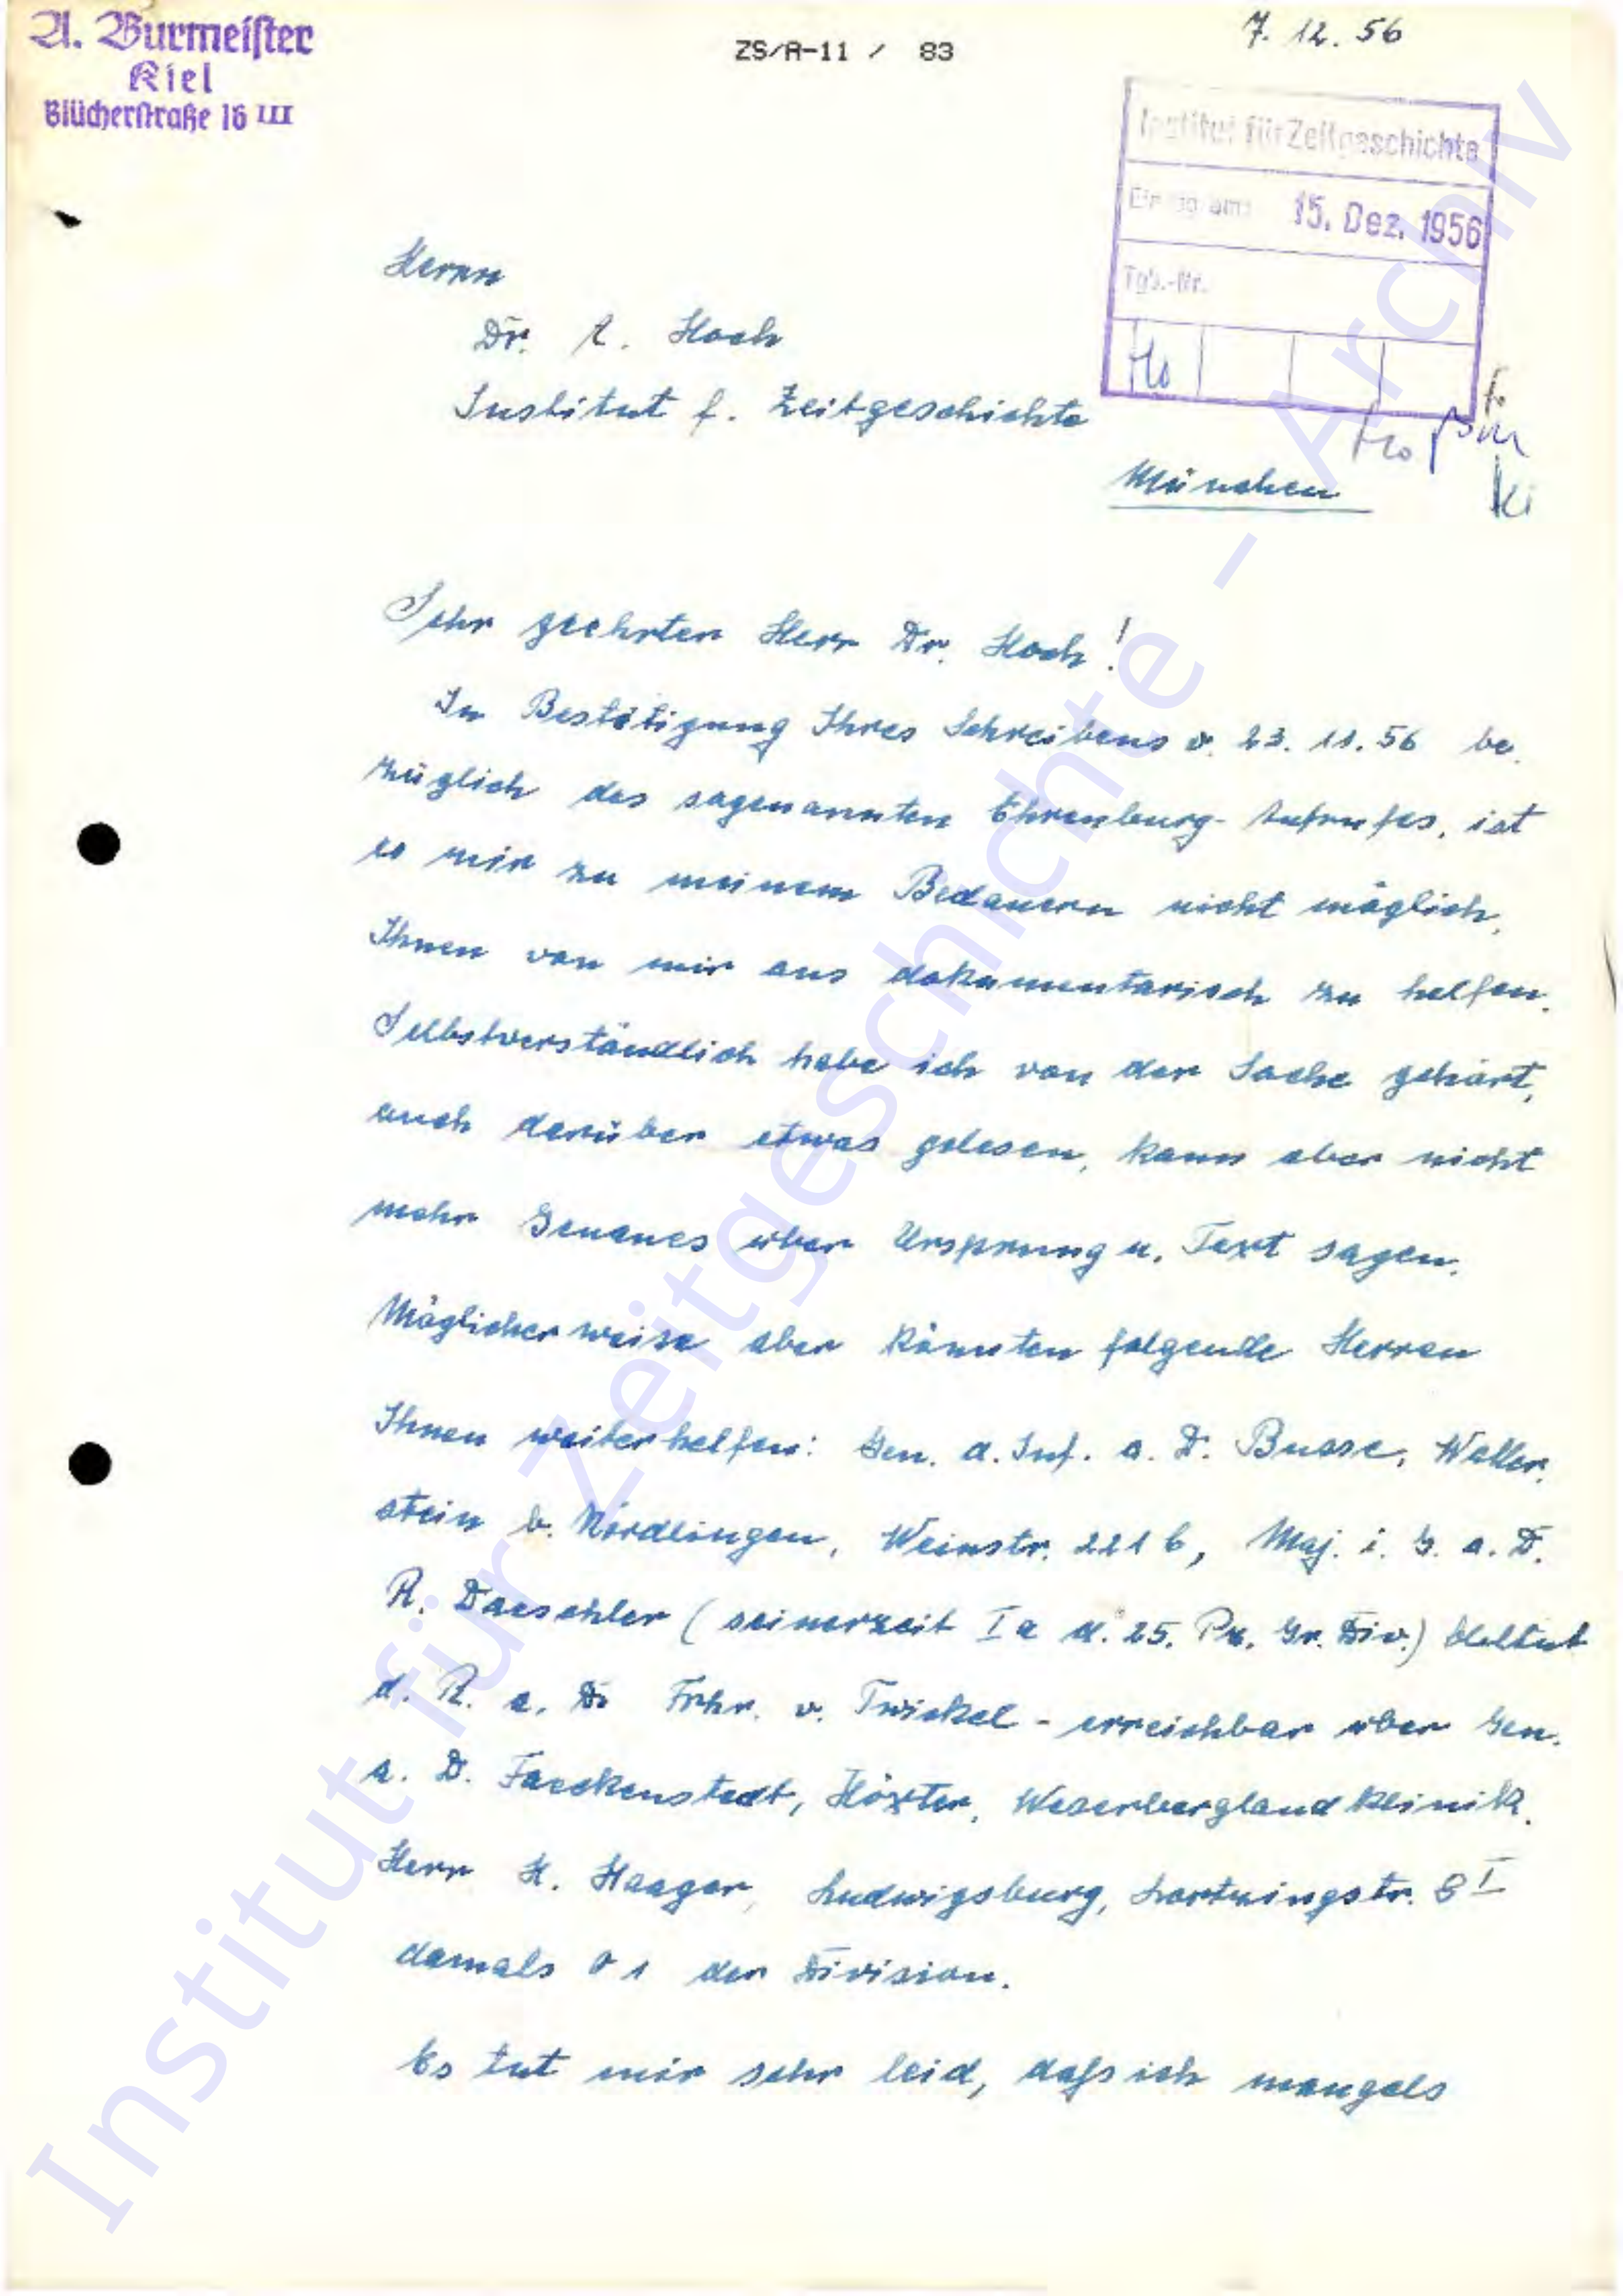 A. Burmeister
Kiel
Blücherstraße 16 III
ZS/A-11 / 83
7. 12. 56
Institut für Zeitgeschichte
15. Dez. 1956
Tgb.-Nr.
Ho
Herrn
Dr. A. Hoch
Institut f. Zeitgeschichte
München
Sehr geehrter Herr Dr. Hoch!
In Bestätigung Ihres Schreibens v. 23. 11. 56 be-
züglich des sogenannten Ehrenburg-Aufrufes, ist
es mir zu meinem Bedauern nicht möglich,
Ihnen von mir aus dokumentarisch zu helfen.
Selbstverständlich habe ich von der Sache gehört,
auch darüber etwas gelesen, kann aber nicht
mehr Genaues über Ursprung u. Text sagen.
Möglicherweise aber könnten folgende Herren
Ihnen weiterhelfen: Gen. d. Inf. a. D. Busse, Waller-
stein b. Nördlingen, Weinstr. 221 b, Maj. i. G. a. D.
R. Daeschler (seinerzeit Ia d. 25. Pz. Gr. Div.)
d. R. a. D. Frhr. v. Twickel - erreichbar über Gen.
a. D. Faeckenstedt, Höxter, Weserberglandklinik.
Herr H. Haager, Ludwigsburg, Lortzingstr. 8 I
damals O 1 der Division.
Es tut mir sehr leid, daß ich mangels
Institut für Zeitgeschichte - Archiv